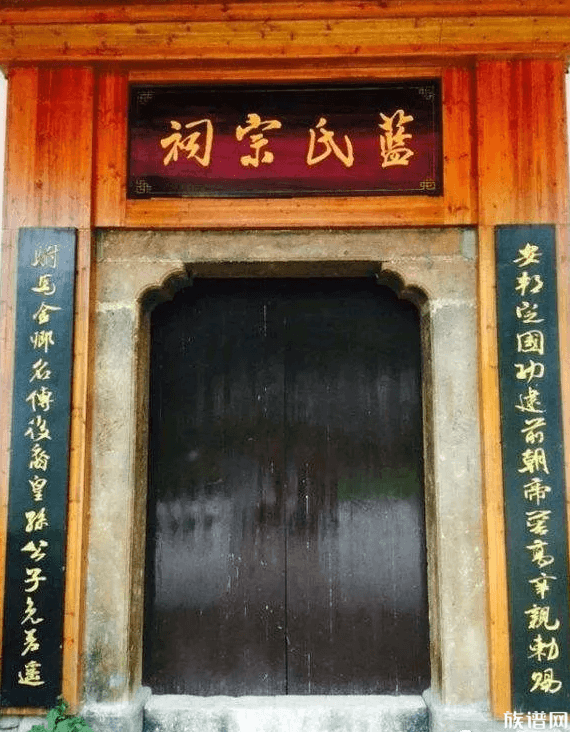 藍氏宗祠
安邦定國功建前朝帝嚳高辛親勅賜
駙馬金卿名傳後裔皇孫公子免差遙
族谱网